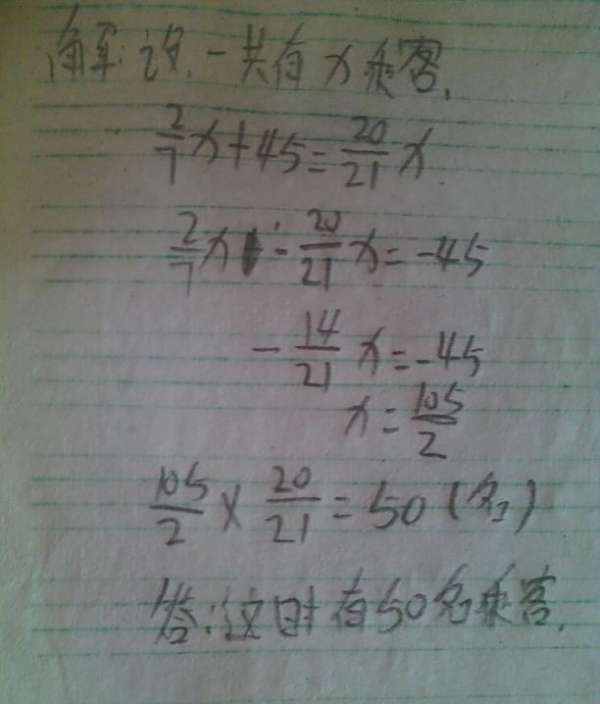 解:设一共有x乘客.
2/7x+45=20/21x
2/7x-20/21x=-45
-14/21x=-45
x=105/2
105/2×20/21=50(名)
答:这时有50名乘客.